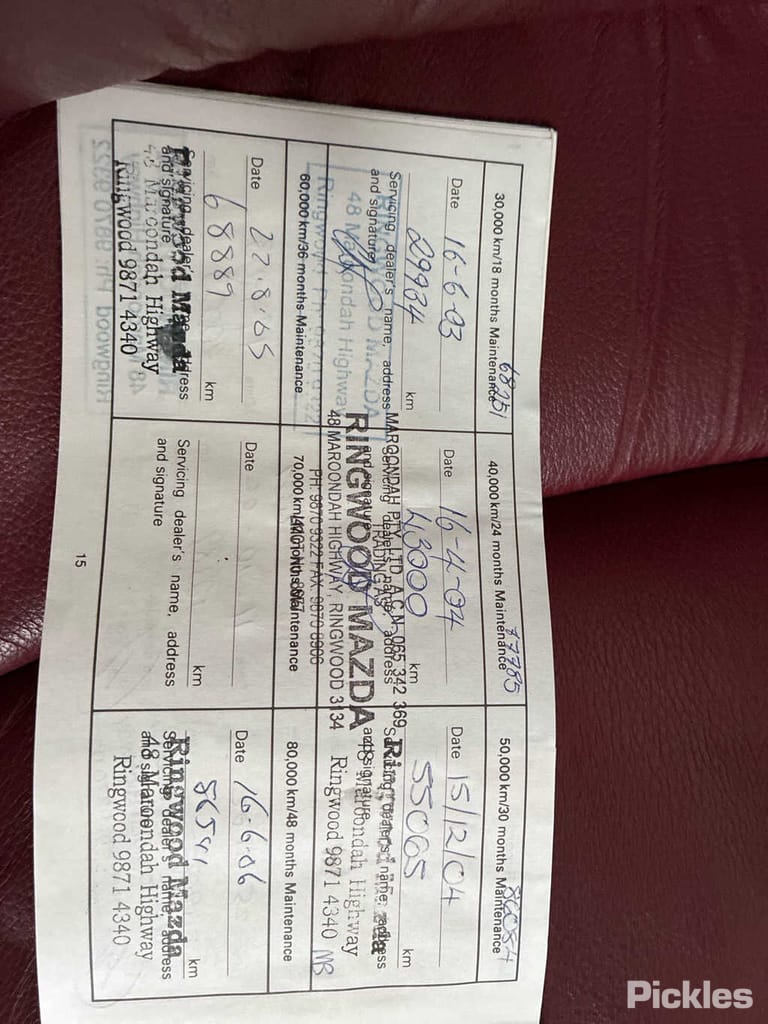 30,000 km/18 months Maintenance
68251
Date 16-6-03
29934 km
Servicing dealer's name, address
and signature
RINGWOOD MAZDA
48 Maroondah Highway
40,000 km/24 months Maintenance
77785
Date 16-4-04
43000 km
Servicing dealer's name, address
and signature
MAROONDAH PTY. LTD. A.C.N. 065 342 369
TRADING AS
RINGWOOD MAZDA
48 MAROONDAH HIGHWAY, RINGWOOD 3134
PH: 9870 9322 FAX: 9870 8906
50,000 km/30 months Maintenance
86084
Date 15/12/04
55065 km
Servicing dealer's name, address
and signature
48 Maroondah Highway
Ringwood 9871 4340
60,000 km/36 months Maintenance
Date 22.8.05
68889 km
Servicing dealer's name, address
and signature
Ringwood Mazda
48 Maroondah Highway
Ringwood 9871 4340
70,000 km/42 months Maintenance
Date
km
Servicing dealer's name, address
and signature
80,000 km/48 months Maintenance
Date 16-6-06
86541 km
Servicing dealer's name, address
and signature
Ringwood Mazda
48 Maroondah Highway
Ringwood 9871 4340
15
Pickles